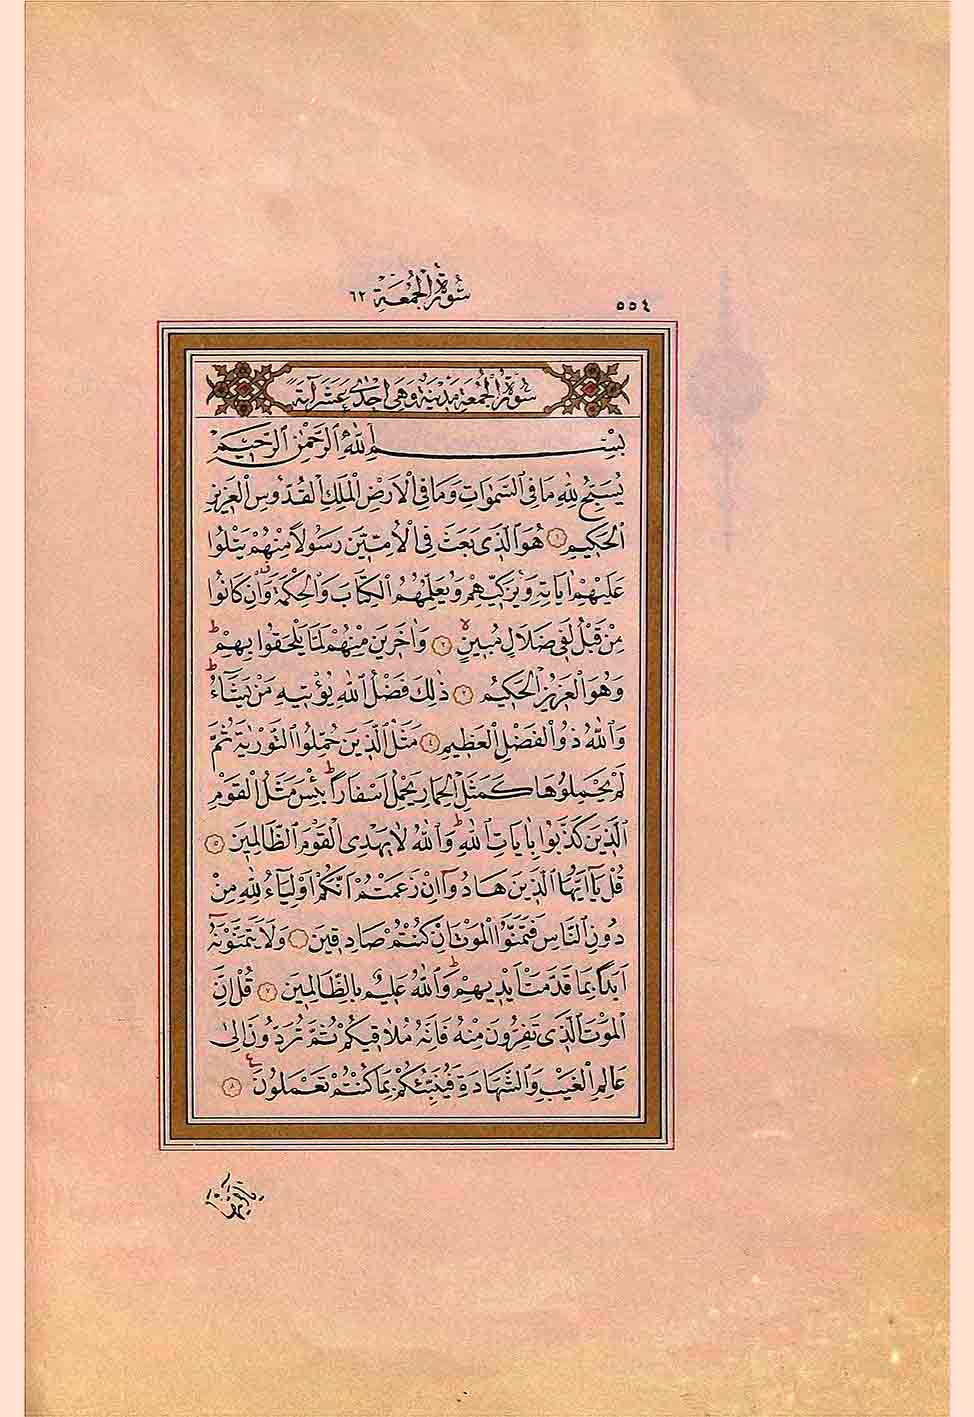 ٥٥٤
سُورَةُ الْجُمُعَةِ ٦٢
سُورَةُ الْجُمُعَةِ مَدَنِيَّةٌ وَهِيَ اِحْدٰى عَشَرَ اٰيَةً
بِسْمِ اللّٰهِ الرَّحْمٰنِ الرَّحِيمِ
يُسَبِّحُ لِلّٰهِ مَا فِى السَّمٰوَاتِ وَمَا فِى الْاَرْضِ الْمَلِكِ الْقُدُّوسِ الْعَزِيزِ
الْحَكِيمِ ١ هُوَ الَّذِى بَعَثَ فِى الْاُمِّيّٖنَ رَسُولاً مِنْهُمْ يَتْلُوا
عَلَيْهِمْ اٰيَاتِهٖ وَيُزَكِّيهِمْ وَيُعَلِّمُهُمُ الْكِتَابَ وَالْحِكْمَةَ وَاِنْ كَانُوا
مِنْ قَبْلُ لَفِى ضَلَالٍ مُبِينٍ ٢ وَاٰخَرِينَ مِنْهُمْ لَمَّا يَلْحَقُوا بِهِمْ ط
وَهُوَ الْعَزِيزُ الْحَكِيمُ ٣ ذٰلِكَ فَضْلُ اللّٰهِ يُؤْتِيهِ مَنْ يَشَٓاءُ ط
وَاللّٰهُ ذُو الْفَضْلِ الْعَظِيمِ ٤ مَثَلُ الَّذِينَ حُمِّلُوا التَّوْرٰيةَ ثُمَّ
لَمْ يَحْمِلُوهَا كَمَثَلِ الْحِمَارِ يَحْمِلُ اَسْفَاراً ط بِئْسَ مَثَلُ الْقَوْمِ
الَّذِينَ كَذَّبُوا بِاٰيَاتِ اللّٰهِ ط وَاللّٰهُ لَا يَهْدِى الْقَوْمَ الظَّالِمِينَ ٥
قُلْ يَٓا اَيُّهَا الَّذِينَ هَادُٓوا اِنْ زَعَمْتُمْ اَنَّكُمْ اَوْلِيَٓاءُ لِلّٰهِ مِنْ
دُونِ النَّاسِ فَتَمَنَّوُا الْمَوْتَ اِنْ كُنْتُمْ صَادِقِينَ ٦ وَلَا يَتَمَنَّوْنَهُٓ
اَبَداً بِمَا قَدَّمَتْ اَيْدِيهِمْ ط وَاللّٰهُ عَلِيمٌ بِالظَّالِمِينَ ٧ قُلْ اِنَّ
الْمَوْتَ الَّذِى تَفِرُّونَ مِنْهُ فَاِنَّهُ مُلَاقِيكُمْ ثُمَّ تُرَدُّونَ اِلٰى
عَالِمِ الْغَيْبِ وَالشَّهَادَةِ فَيُنَبِّئُكُمْ بِمَا كُنْتُمْ تَعْمَلُونَ ع ٨
يَٓا اَيُّهَا